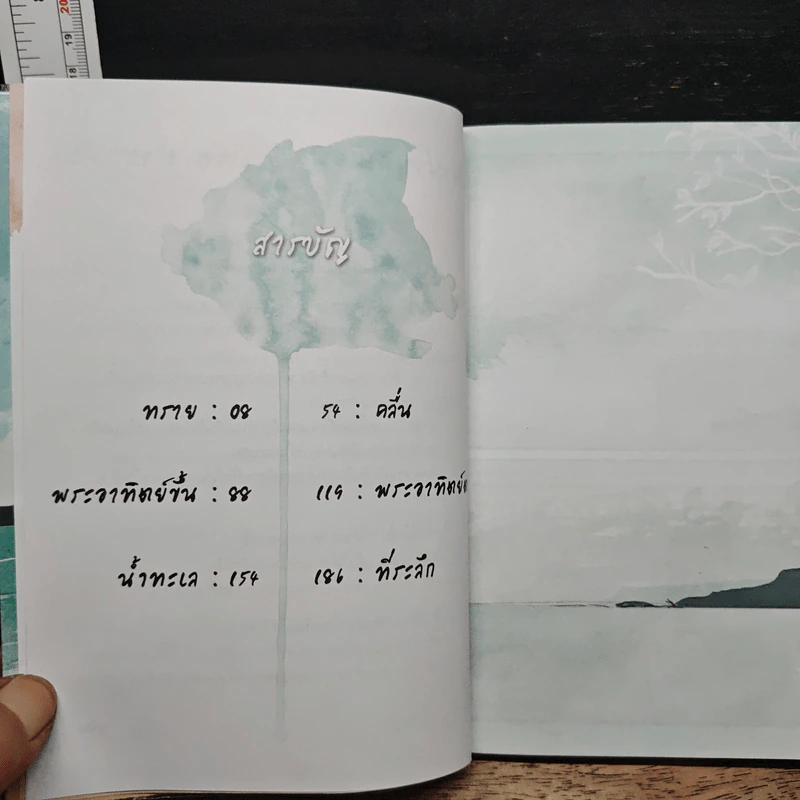 20
19
18
สารบัญ
ทราย : 08 54 : คลื่น
พระอาทิตย์ขึ้น : 88 119 : พระอาทิตย์
น้ำทะเล : 154 186 : ที่ระลึก